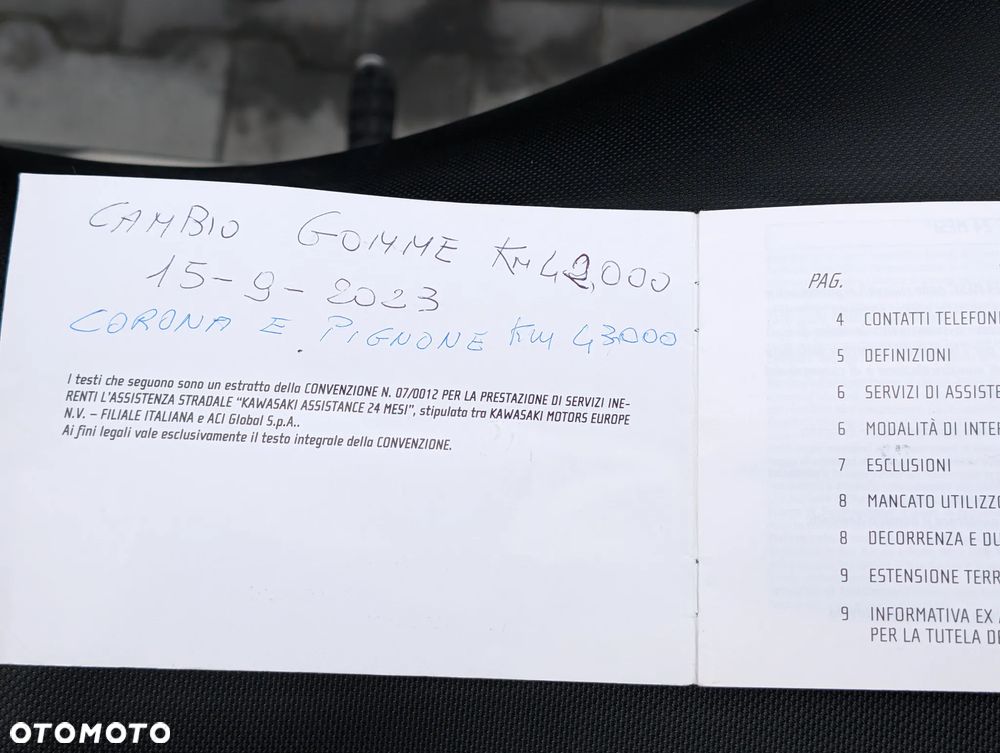 CAMBIO GOMME KM 42,000
15-9-2023
CORONA E PIGNONE KM 43000
I testi che seguono sono un estratto della CONVENZIONE N. 07/0012 PER LA PRESTAZIONE DI SERVIZI INE-
RENTI L'ASSISTENZA STRADALE "KAWASAKI ASSISTANCE 24 MESI", stipulata tra KAWASAKI MOTORS EUROPE
N.V. – FILIALE ITALIANA e ACI Global S.p.A..
Ai fini legali vale esclusivamente il testo integrale della CONVENZIONE.
PAG.
4 CONTATTI TELEFONI
5 DEFINIZIONI
6 SERVIZI DI ASSISTE
6 MODALITÀ DI INTER
7 ESCLUSIONI
8 MANCATO UTILIZZO
8 DECORRENZA E DU
9 ESTENSIONE TERR
9 INFORMATIVA EX
PER LA TUTELA DE
OTOMOTO